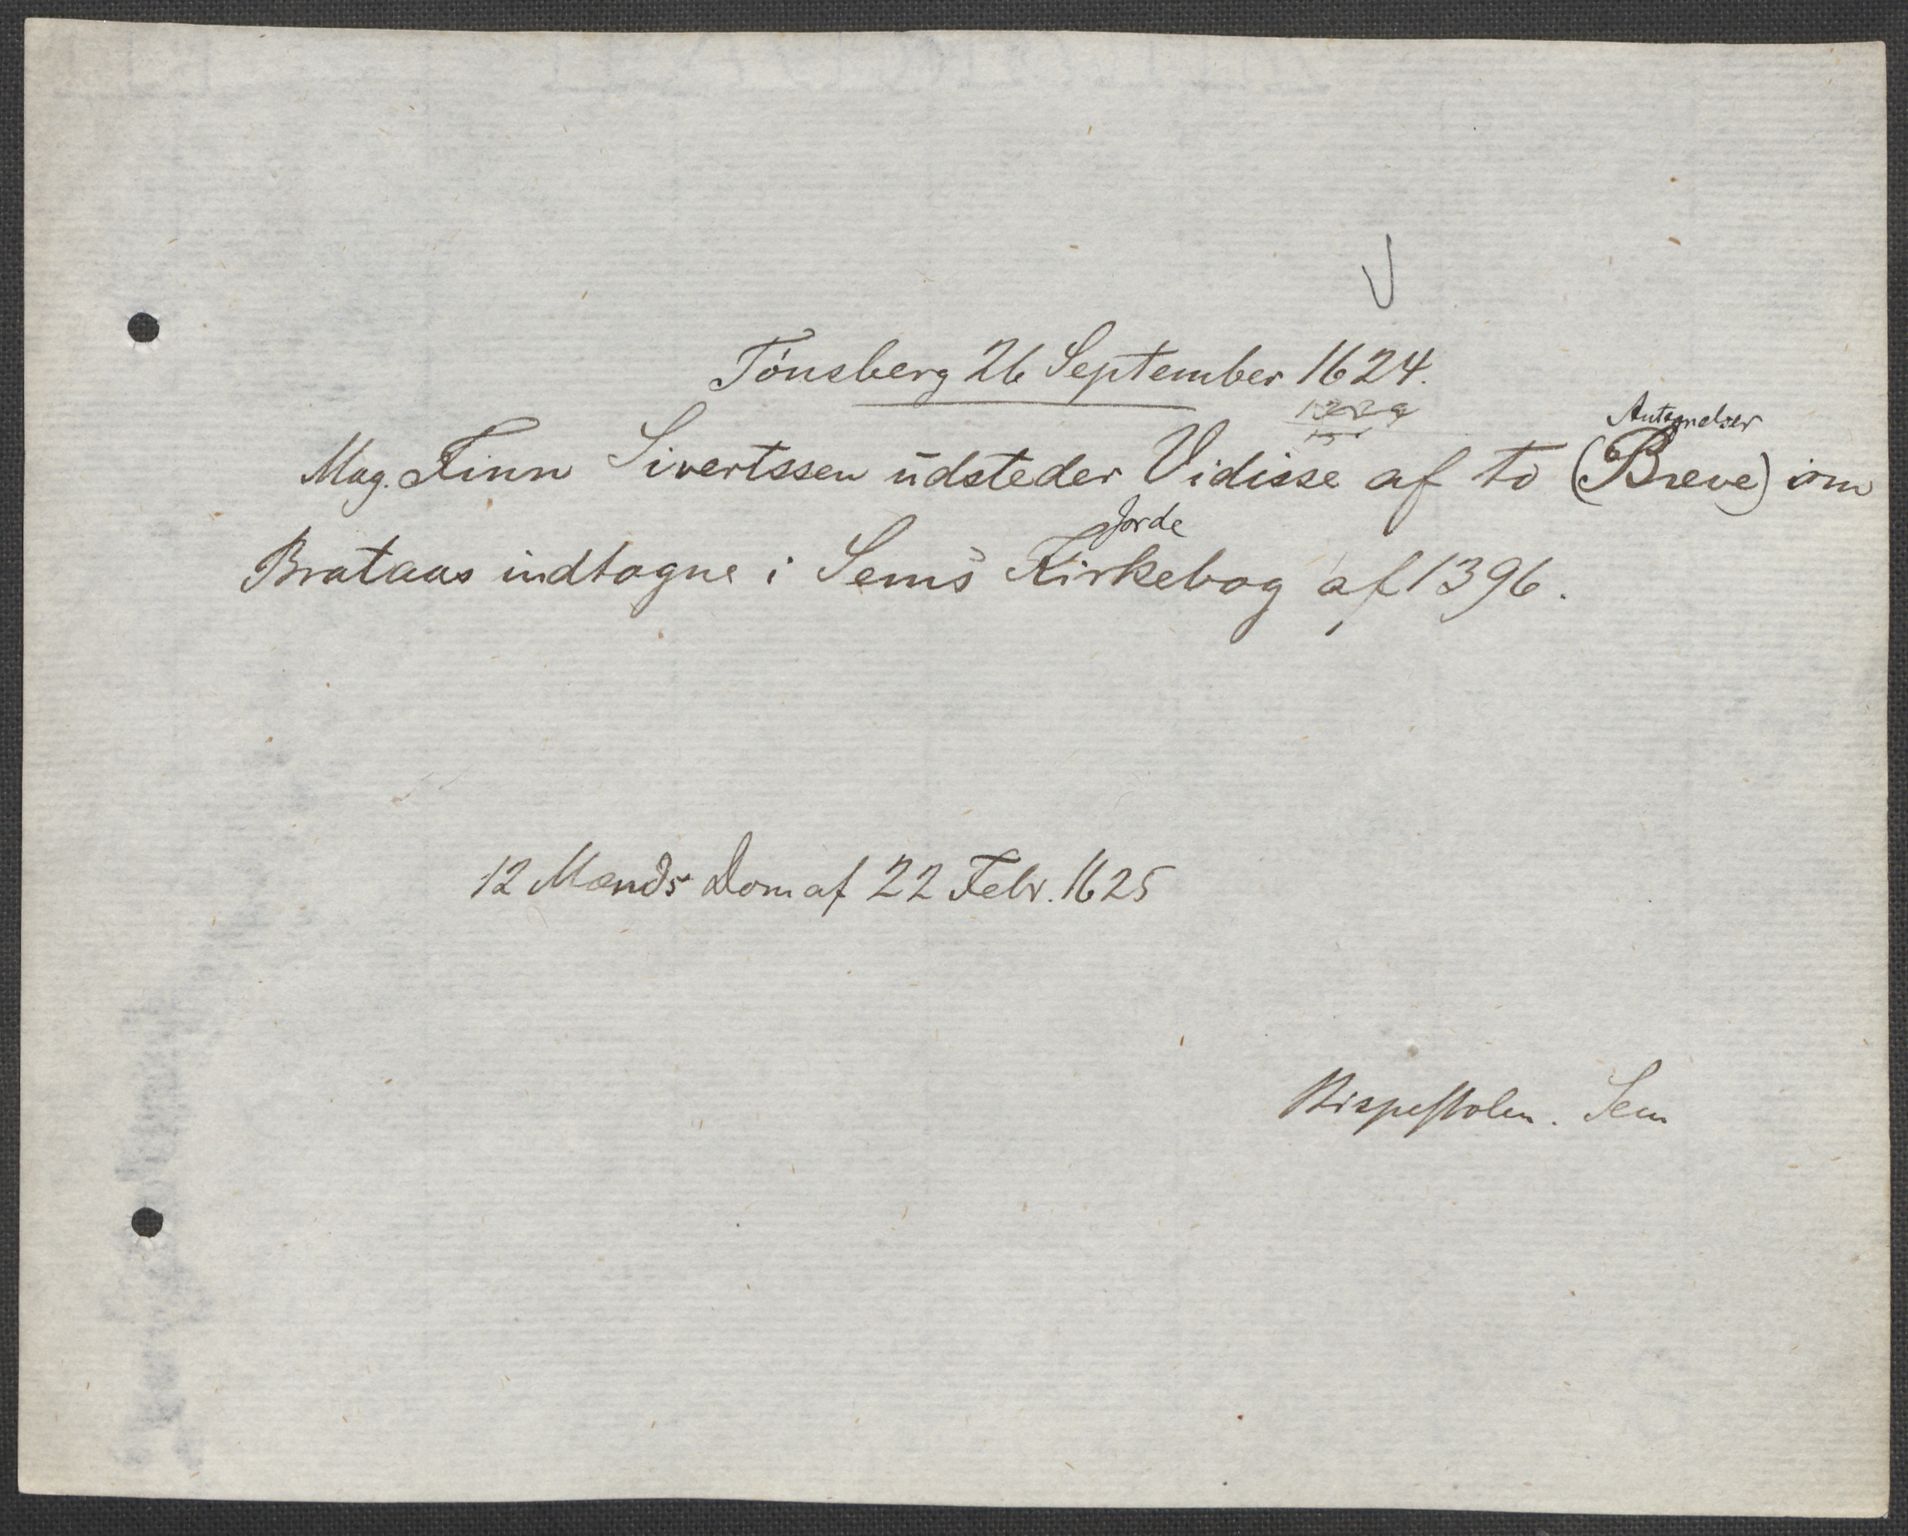 Tønsberg 26 September 1624.
Antegnelser
Mag. Finn Sivertssen udsteder Vidisse af to (Breve) om
Jorde
Brataas indtagne i Sem's Kirkebog af 1396.
12 Mænds Dom af 22 Febr. 1625
Bispestolen. Sem